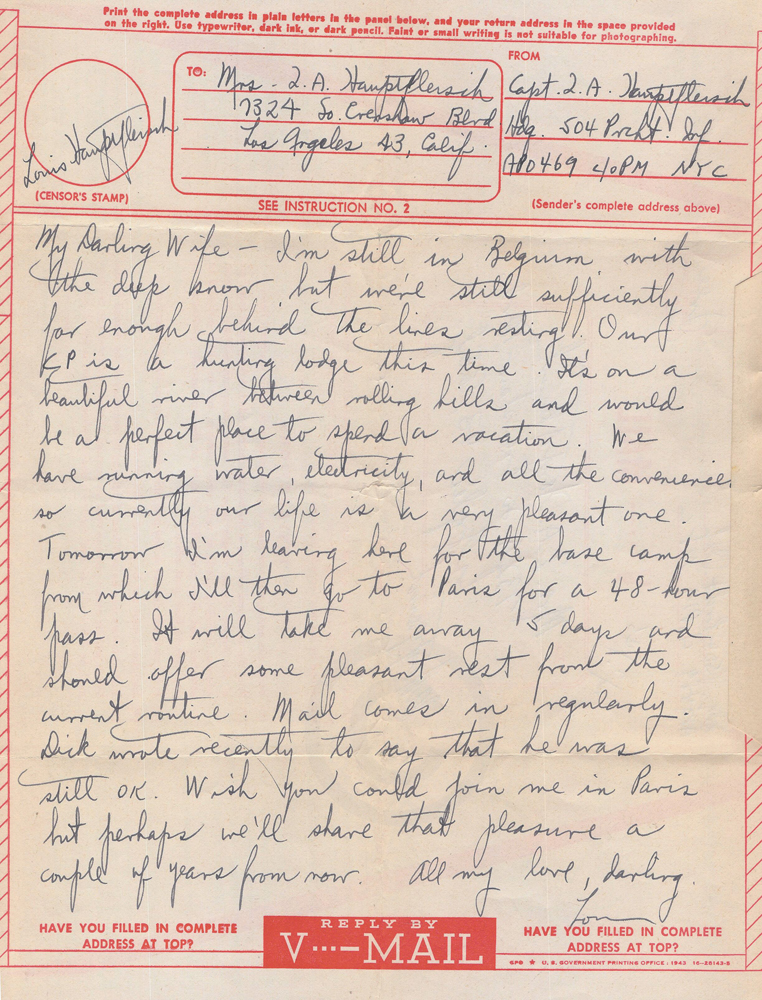 Print the complete address in plain letters in the panel below, and your return address in the space provided
on the right. Use typewriter, dark ink, or dark pencil. Faint or small writing is not suitable for photographing.
FROM
TO: Mrs. L. A. Hauptfleisch
7324 So. Crenshaw Blvd
Los Angeles 43, Calif.
Capt. L. A. Hauptfleisch
Hdq. 504 Prcht. Inf.
APO 469 c/o PM NYC
Louis Hauptfleisch
(CENSOR'S STAMP)
SEE INSTRUCTION NO. 2
(Sender's complete address above)
My Darling Wife – I'm still in Belgium with
the deep snow, but we're still sufficiently
far enough behind the lines resting. Our
CP is a hunting lodge this time. It's on a
beautiful river between rolling hills and would
be a perfect place to spend a vacation. We
have running water, electricity, and all the conveniences
so currently our life is a very pleasant one.
Tomorrow I'm leaving here for the base camp
from which I'll then go to Paris for a 48-hour
pass. It will take me away 5 days and
should offer some pleasant rest from the
current routine. Mail comes in regularly.
Dick wrote recently to say that he was
still OK. Wish you could join me in Paris
but perhaps we'll share that pleasure a
couple of years from now. All my love, darling.
Lou
HAVE YOU FILLED IN COMPLETE
ADDRESS AT TOP?
REPLY BY
V···—MAIL
HAVE YOU FILLED IN COMPLETE
ADDRESS AT TOP?
GPO ★ U. S. GOVERNMENT PRINTING OFFICE : 1943 16—28143-5